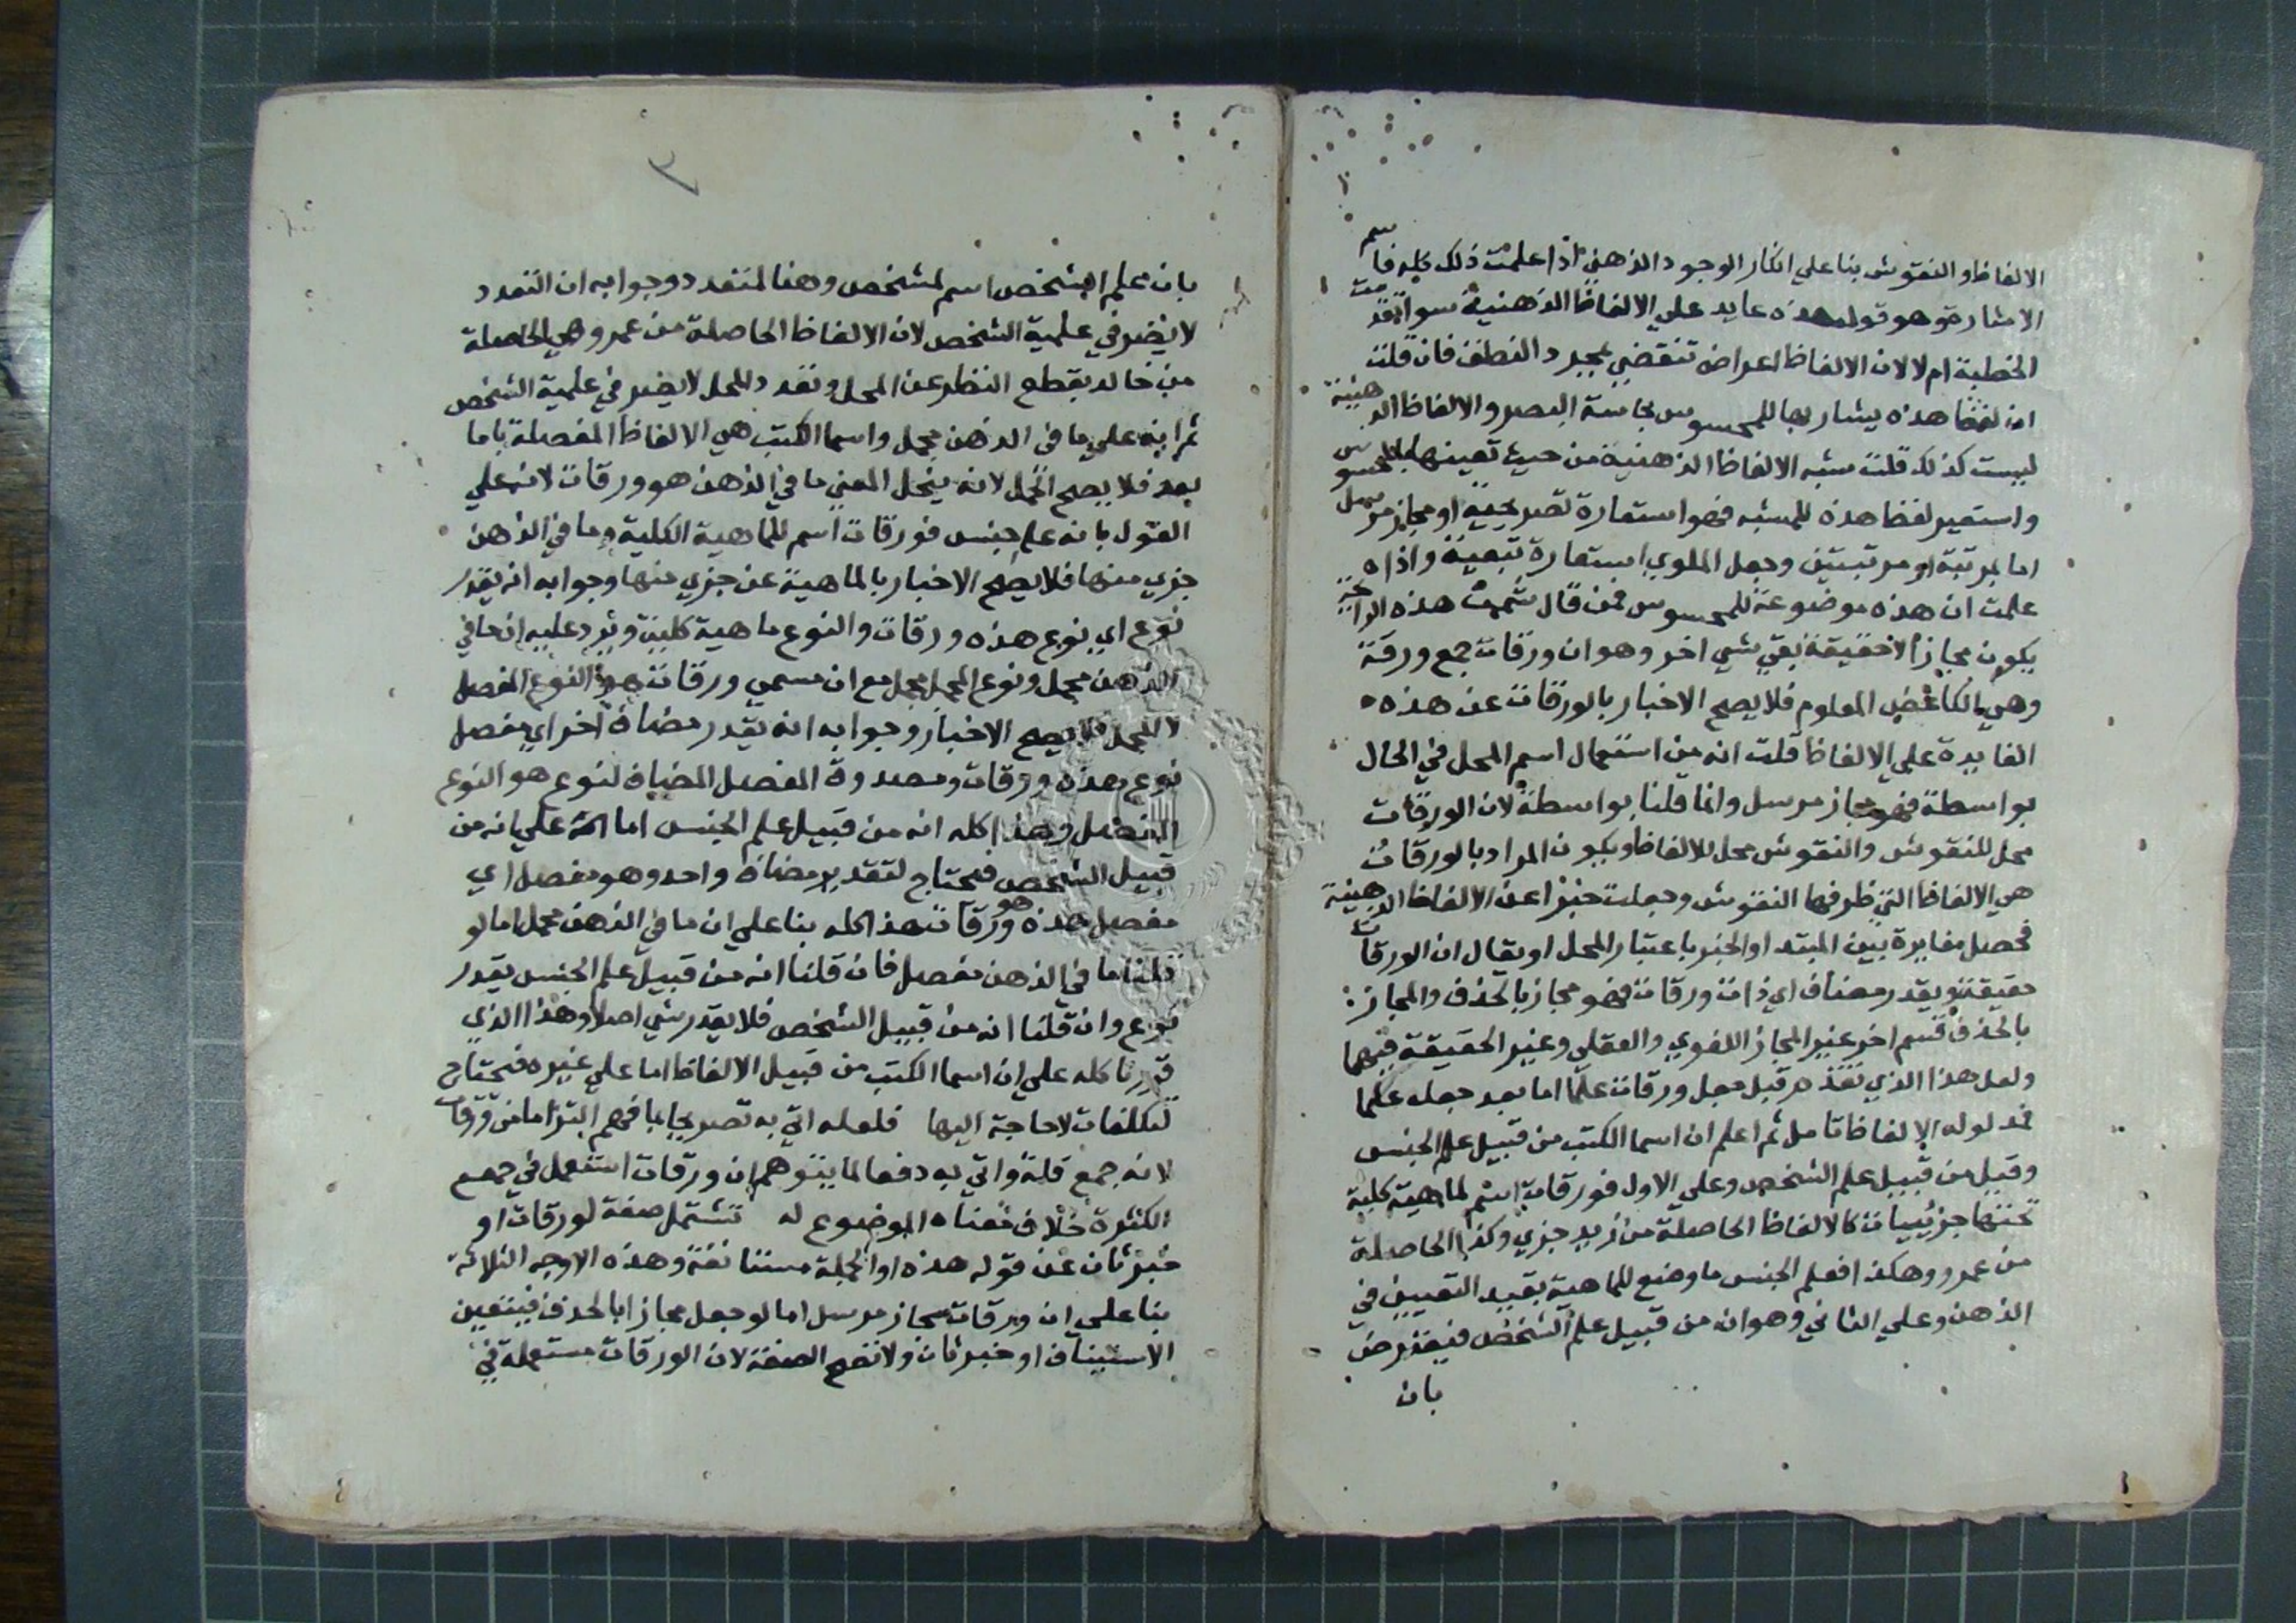 الالفاظ او النقوش بنا علي انكار الوجود الذهني اذا علمت ذلك كله فاسم
الاشارة وهو قوله هذه عايد علي الالفاظ الذهنية سوا تقدمت
الخطبة ام لا لان الالفاظ اعراض تنقضي بمجرد النطق فان قلت
ان لفظ هذه يشار بها للمحسوس بحاسة البصر والالفاظ الذهنية
ليست كذلك قلت شبه الالفاظ الذهنية من حيث تعينها بالمحسوس
واستعير لفظ هذه للمشبه فهو استعارة تصريحية او مجاز مرسل
اما بمرتبة او مرتبتين وجعل الملوي استعارة تبعية واذا
علمت ان هذه موضوعة للمحسوس فمن قال شممت هذه الرائحة
يكون مجازا لا حقيقة بقي شي اخر وهو ان ورقات جمع ورقة
وهي الكاغض المعلوم فلا يصح الاخبار بالورقات عن هذه
العايدة علي الالفاظ قلت انه من استعمال اسم المحل في الحال
بواسطة فهو مجاز مرسل وانما قلنا بواسطة لان الورقات
محل للنقوش والنقوش محل للالفاظ ويكون المراد بالورقات
هي الالفاظ التي ظرفها النقوش وجعلت خبرا عن الالفاظ الذهنية
فحصل مغايرة بين المبتدا والخبر باعتبار المحل او يقال ان الورقات
حقيقة ويقدر مضاف اي ذات ورقات فهو مجاز بالحذف والمجاز
بالحذف قسم اخر غير المجاز اللغوي والعقلي وغير الحقيقة فيهما
ولعل هذا الذي تقدم قبل جعل ورقات علما اما بعد جعله علما
فمدلوله الالفاظ تامل ثم اعلم ان اسما الكتب من قبيل علم الجنس
وقيل من قبيل علم الشخص وعلي الاول فورقات اسم لماهية كلية
تحتها جزئييات كالالفاظ الحاصلة من زيد جزي وكذا الحاصلة
من عمرو وهكذا فعلم الجنس ما وضع للماهية بقيد التعيين في
الذهن وعلي الثاني وهو انه من قبيل علم الشخص فيعترض
بان
٣
بان علم الشخص اسم لمشخص وهنا لمتعدد وجوابه ان التعدد
لا يضر في علمية الشخص لان الالفاظ الحاصلة من عمرو هي الحاصلة
من خالد بقطع النظر عن المحل وتعدد المحل لا يضر في علمية الشخص
ثم انه علي ما في الذهن مجمل واسما الكتب هي الالفاظ المفصلة باما
بعد فلا يصح الحمل لانه ينحل المعني ما في الذهن هو ورقات لانه علي
القول بانه علم جنس فورقات اسم للماهية الكلية وما في الذهن
جزي منها فلا يصح الاخبار بالماهية عن جزي منها وجوابه انه يقدر
نوع اي نوع هذه ورقات والنوع ماهية كلية ويرد عليه ان ما في
الذهن مجمل ونوع المجمل مجمل مع ان مسمي ورقات هو النوع المفصل
لا المجمل فلا يصح الاخبار وجوابه انه يقدر مضاف اخر اي مفصل
نوع هذه ورقات ومصدوق المفصل المضاف لنوع هو النوع
المفصل وهذا كله انه من قبيل علم الجنس اما علي انه من
قبيل الشخص فيحتاج لتقدير مضاف واحد وهو مفصل اي
مفصل هذه هو ورقات هذا كله بنا علي ان ما في الذهن مجمل اما لو
قلنا ما في الذهن مفصل فان قلنا انه من قبيل علم الجنس يقدر
نوع وان قلنا انه من قبيل الشخص فلا يقدر شي اصلا وهذا الذي
قررنا كله علي ان اسما الكتب من قبيل الالفاظ اما علي غيره فيحتاج
لتكلفات لا حاجة اليها فلعله اتي به تصريحا بما فهم التزاما من ورقات
لانه جمع قلة واتي به دفعا لما يتوهم ان ورقات استعمل في جمع
الكثرة خلاف معناه الموضوع له تشتمل صفة لورقات او
خبر ثان عن قوله هذه او الجملة مستانفة وهذه الاوجه الثلاثة
بنا علي ان ورقات مجاز مرسل اما لو جعل مجازا بالحذف فيتعين
الاستيناف او خبر ثان ولا تصح الصفة لان الورقات مستعملة في